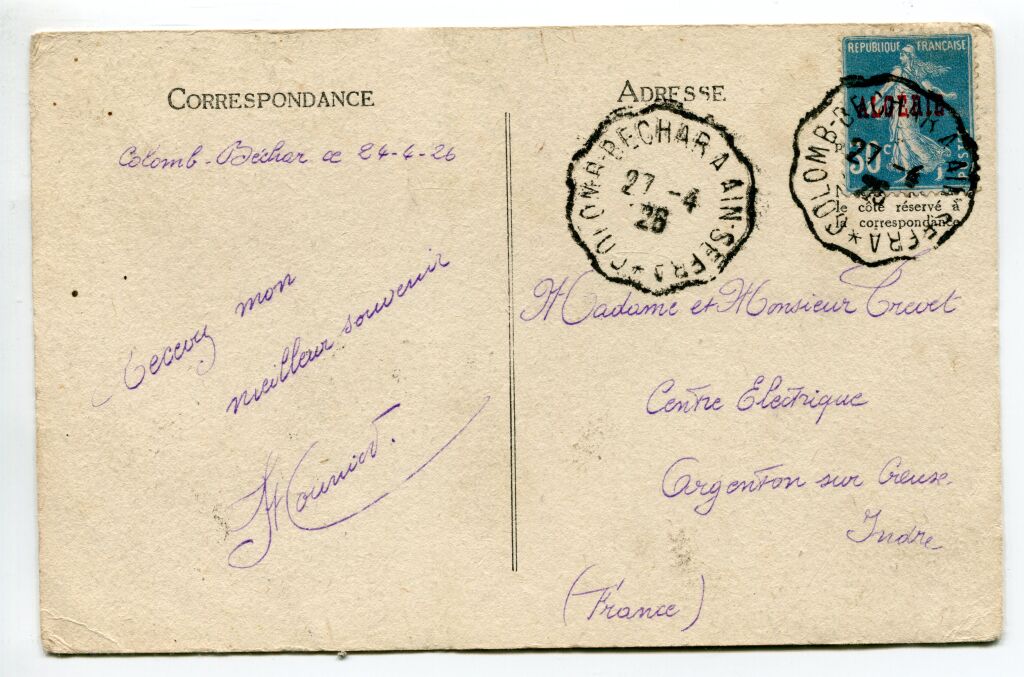 CORRESPONDANCE
Colomb-Béchar ce 24-4-26
Recevez mon
meilleur souvenir
ADRESSE
COLOMB-BECHAR A AIN-SEFRA *
27 -4
26
REPUBLIQUE FRANÇAISE
ALGÉRIE
COLOMB-BECHAR A AIN-SEFRA *
27 -4
26
le côté réservé à
la correspondance
Madame et Monsieur Trevet
Centre Electrique
Argenton sur Creuse
Indre
(France)